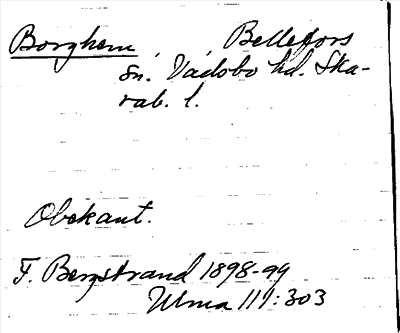 Borghem, Bellefors
sn. Vadsbo hd. Ska-
rab. l.
Obekant.
F. Bergstrand 1898-99
Ulma 111:303